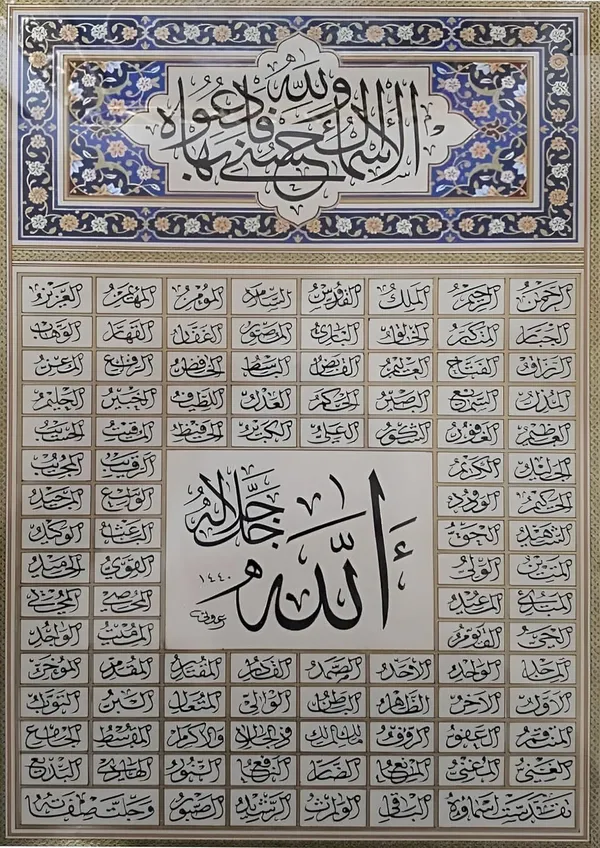 ولله الأسماء الحسنى فادعوه بها
الرحمن الرحيم الملك القدوس السلام المؤمن المهيمن العزيز
الجبار المتكبر الخالق البارئ المصور الغفار القهار الوهاب
الرزاق الفتاح العليم القابض الباسط الخافض الرافع المعز
المذل السميع البصير الحكم العدل اللطيف الخبير الحليم
العظيم الغفور الشكور العلي الكبير الحفيظ المقيت الحسيب
الجليل الكريم الرقيب المجيب
الحكيم الودود الواسع المجيد
الشهيد الحق الباعث الوكيل
المتين الولي القوي الحميد
المبدئ المعيد المحصي المحيي
الحي القيوم المميت الواجد
الله جل جلاله
١٤٤٠
الماجد الواحد الأحد الصمد القادر المقتدر المقدم المؤخر
الأول الآخر الظاهر الباطن الوالي المتعال البر التواب
المنتقم العفو الرؤوف مالك الملك ذو الجلال والإكرام المقسط الجامع
الغني المغني المانع الضار النافع النور الهادي البديع
تقدست أسماؤه الباقي الوارث الرشيد الصبور وجلت صفاته